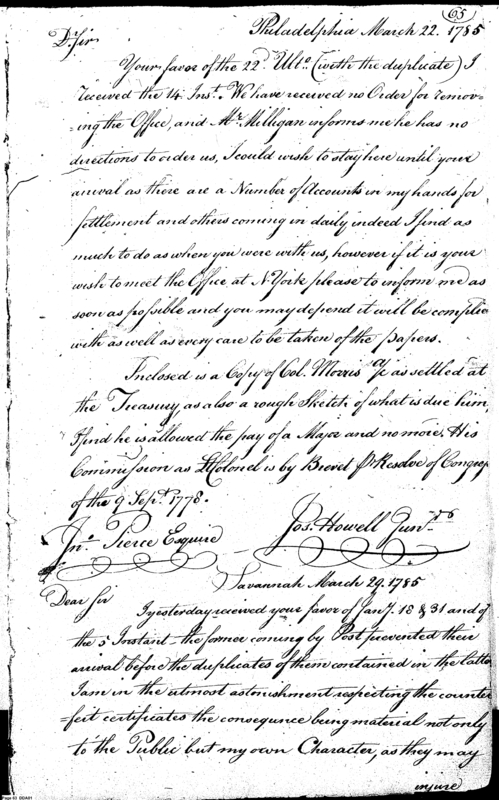 65
Philadelphia March 22. 1785
Dr. Sir
Your favor of the 22d Ulto. (with the duplicate) I
received the 14 Inst. We have received no Order for remov-
=ing the Office, and Mr. Milligan informs me he has no
directions to order us, I could wish to stay here until your
arrival as there are a Number of Accounts in my hands for
settlement and others coming in daily indeed I find as
much to do as when you were with us, however if it is your
wish to meet the Office at N York please to inform me as
soon as possible and you may depend it will be complied
with as well as every care to be taken of the papers.
Inclosed is a Copy of Col. Morris's as settled at
the Treasury, as also a rough Sketch of what is due him,
I find he is allowed the pay of a Major and no more. His
Commission as Lt Colonel is by Brevet Resolve of Congress
of the 9 Sept. 1778.
Jos. Howell Junr.
Jno. Pierce Esquire
Savannah March 29. 1785
Dear Sir
I yesterday received your favor of Jany. 18 & 31 and of
the 5 Instant the former coming by Post prevented their
arrival before the duplicates of them contained in the latter
I am in the utmost astonishment respecting the counter
=feit certificates the consequence being material not only
to the Public but my own Character, as they may
injure